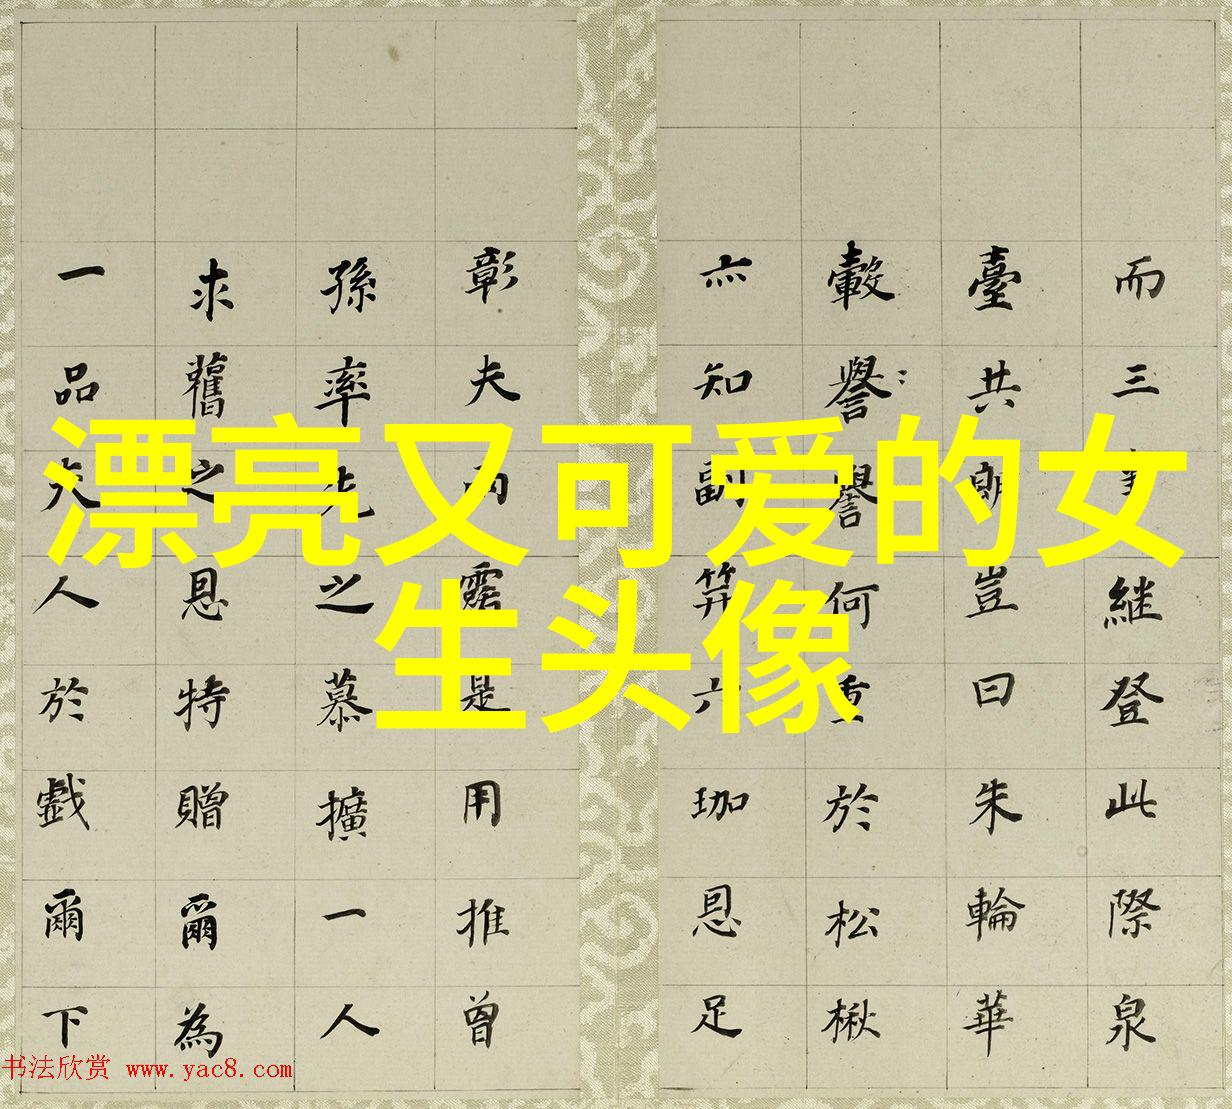 漂亮又可爱的女
生头像
而三継登此際泉
臺共朗豈曰朱輪華
轂譽譽何重於松楸
亦知副笄六珈恩足
彰夫雨露是用推曾
孫率先之慕擴一人
求舊之恩特贈爾為
一品夫人於戲爾下
书法欣赏 www.yac8.com